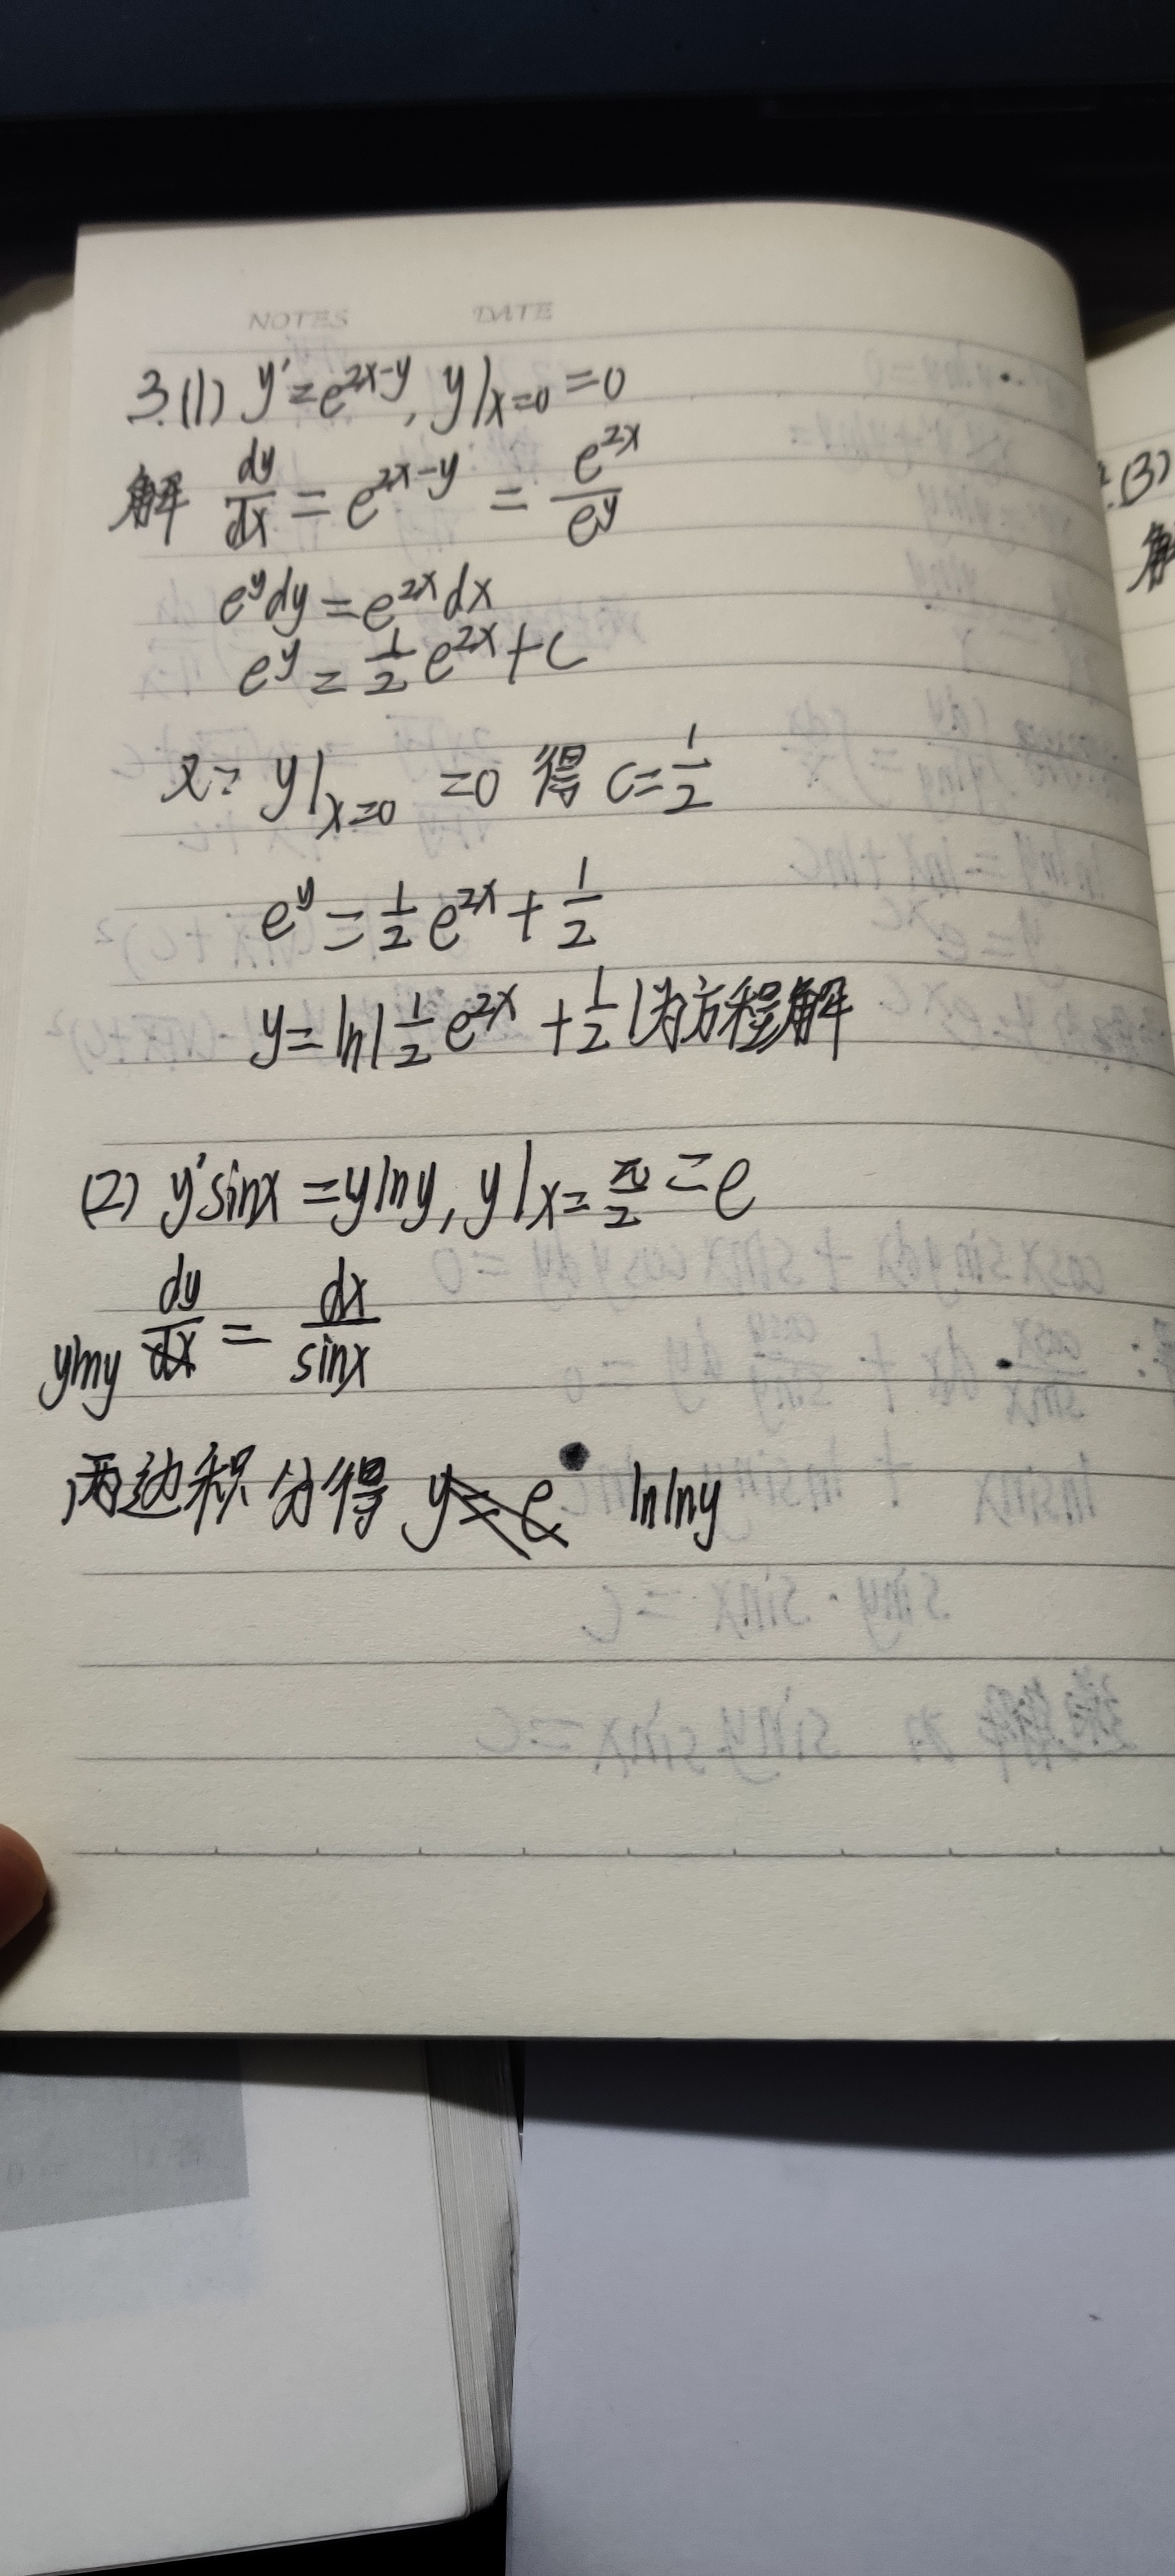 NOTES DATE
3.(1) y'=e^{2x-y}, y|_{x=0}=0
解 dy/dx = e^{2x-y} = e^{2x}/e^y
e^y dy = e^{2x} dx
e^y = 1/2 e^{2x} + C
又: y|_{x=0} =0 得 C=1/2
e^y = 1/2 e^{2x} + 1/2
y = ln|1/2 e^{2x} + 1/2|为方程解
(2) y'sinx = ylny, y|_{x=π/2} = e
dy/ylny = dx/sinx
两边积分得 lnlny
(3)
解